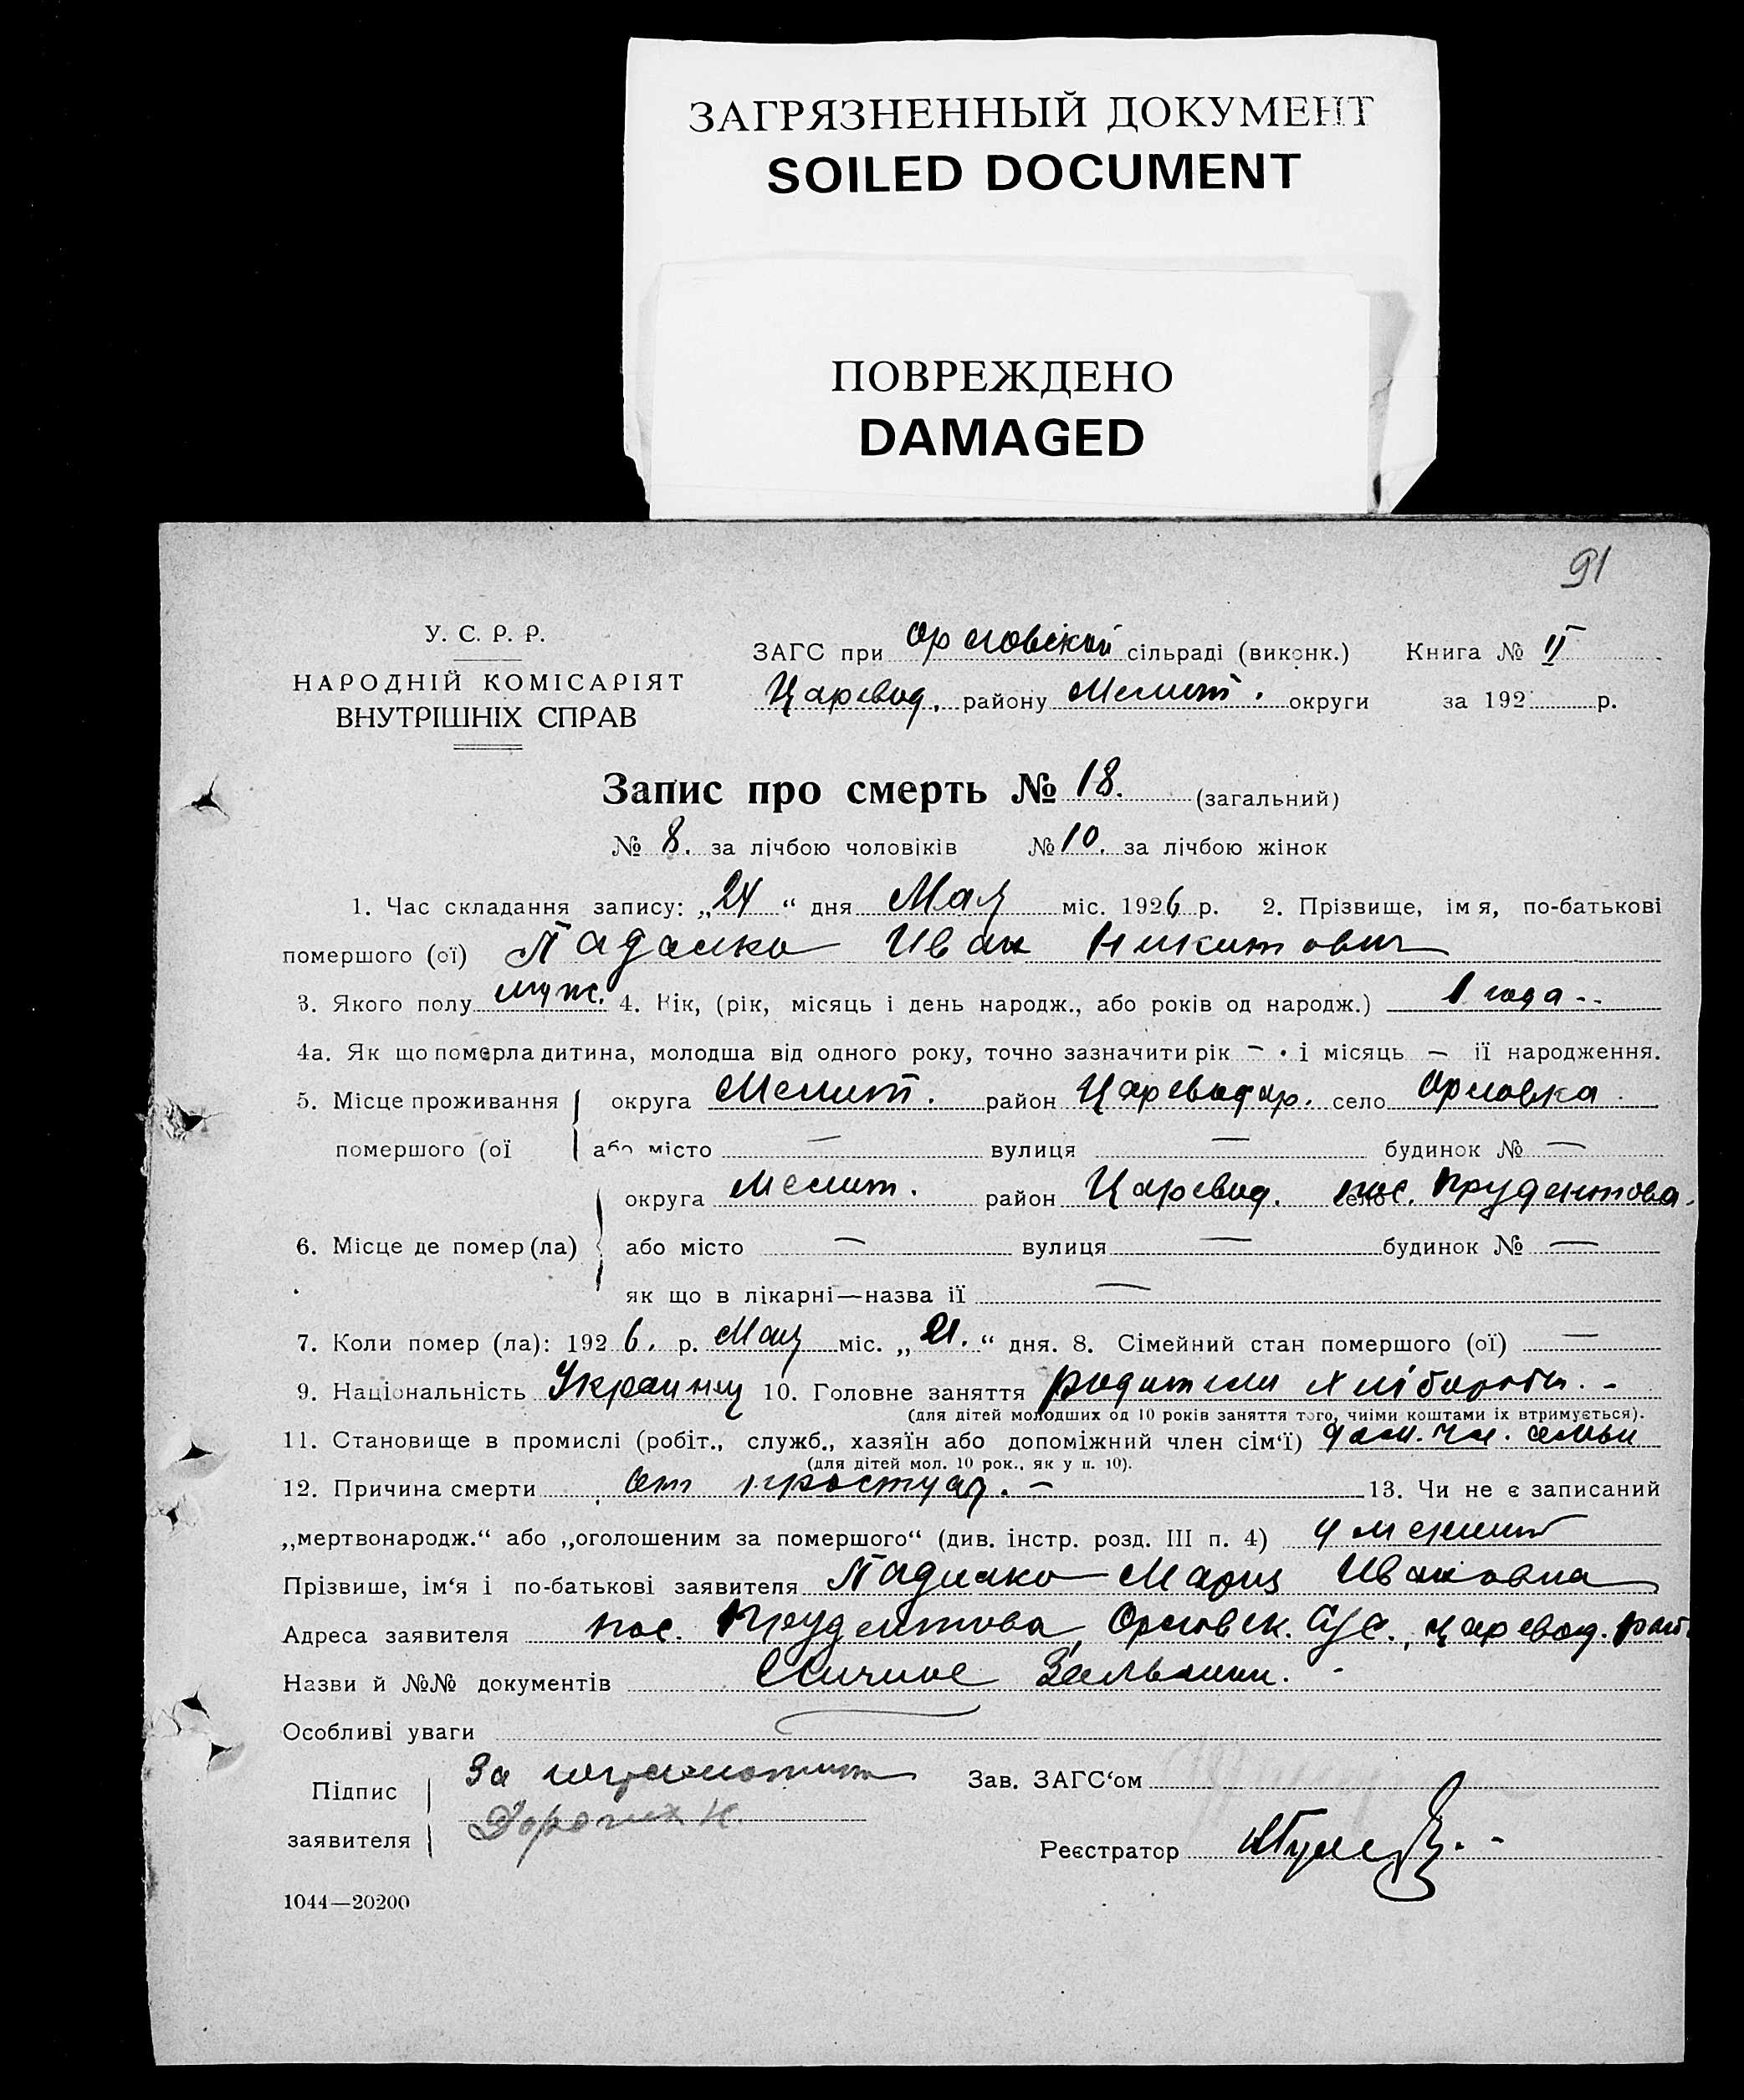 ЗАГРЯЗНЕННЫЙ ДОКУМЕНТ
SOILED DOCUMENT
ПОВРЕЖДЕНО
DAMAGED
91
У. С. Р. Р.
НАРОДНІЙ КОМІСАРІЯТ
ВНУТРІШНІХ СПРАВ
ЗАГС при Орловской сільраді (виконк.) Книга № II
Царевод. району Мелит. округи за 192 р.
Запис про смерть № 18. (загальний)
№ 8. за лічбою чоловіків № 10. за лічбою жінок
1. Час складання запису: „24“ дня Мая міс. 1926 р. 2. Прізвище, імя, по-батькові
помершого (ої) Падалко Иван Никитович
3. Якого полу муж. 4. Вік, (рік, місяць і день народж., або років од народж.) 1 года --
4а. Як що померла дитина, молодша від одного року, точно зазначити рік — і місяць — її народження.
5. Місце проживання округа Мелит. район Цареводар. село Орловка
помершого (ої або місто — вулиця — будинок № —
округа Мелит. район Царевод. село пос. Прудентова.
6. Місце де помер (ла) або місто — вулиця — будинок № —
як що в лікарні—назва її —
7. Коли помер (ла): 1926. р. Мая міс. „21.“ дня. 8. Сімейний стан помершого (ої) —
9. Національність Украинец 10. Головне заняття родители хлібороби. -
(для дітей молодших од 10 років заняття того, чиїми коштами їх втримується).
11. Становище в промислі (робіт., служб., хазяїн або допоміжний член сім‘ї) чл. семьи
(для дітей мол. 10 рок., як у п. 10).
12. Причина смерти от простуды. - 13. Чи не є записаний
„мертвонародж.“ або „оголошеним за помершого“ (див. інстр. розд. III п. 4) умерший
Прізвише, ім‘я і по-батькові заявителя Падалко Мария Ивановна
Адреса заявителя пос. Прудентова, Орловск. С/С., Царевод. рай.
Назви й №№ документів Личное Заявлении. -
Особливі уваги
Підпис За неграмотную Зав. ЗАГС‘ом
заявителя
Реєстратор
1044—20200